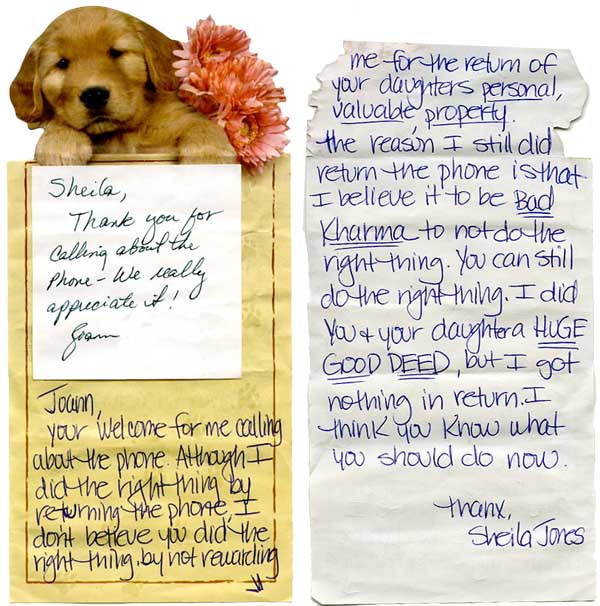 Sheila,
Thank you for
calling about the
phone - We really
appreciate it!
Joann
Joann,
your welcome for me calling
about the phone. Although I
did the right thing by
returning the phone, I
don't believe you did the
right thing, by not rewarding
me for the return of
your daughters personal,
valuable, property.
the reason I still did
return the phone is that
I believe it to be Bad
Kharma to not do the
right thing. You can still
do the right thing. I did
You & your daughter a HUGE
GOOD DEED, but I got
nothing in return. I
think you know what
you should do now.
thanx,
Sheila Jones